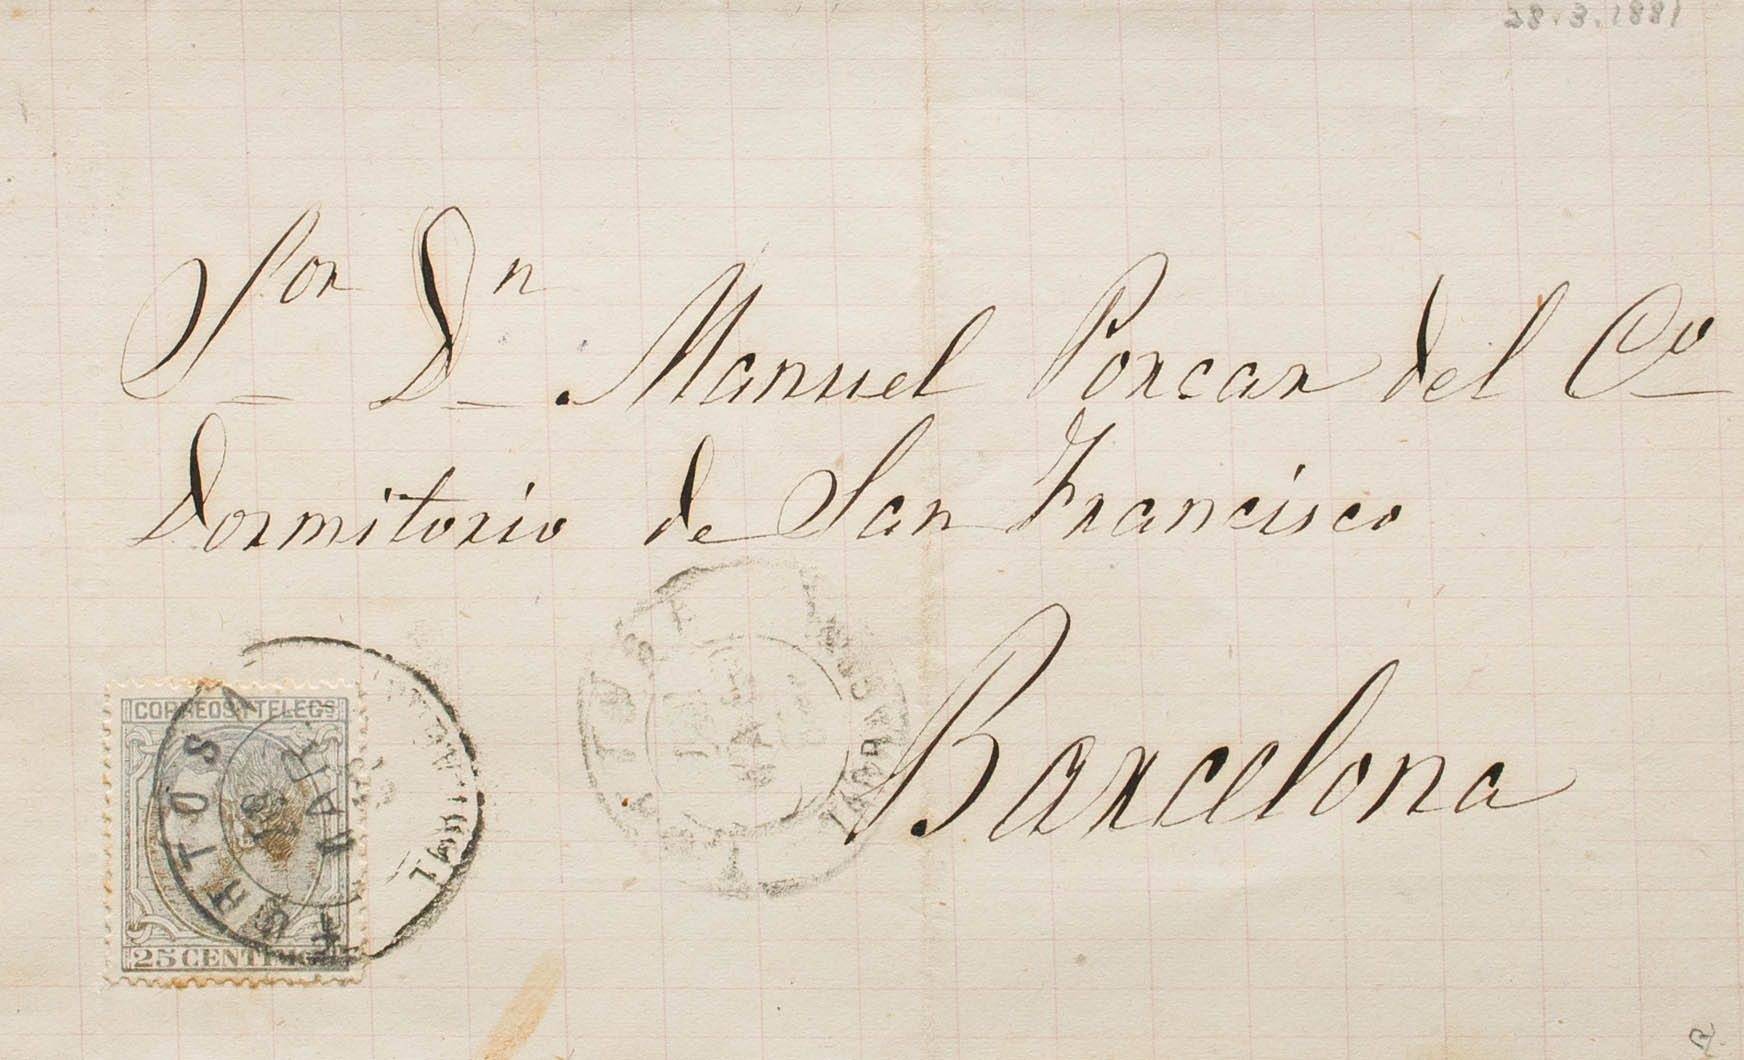 28.3.1881
Sor Dn Manuel Porcar del Co
Dormitorio de San Francisco
Barcelona
CORREOS Y TELEGS
25 CENTIMOS
MAR
TARRAGONA